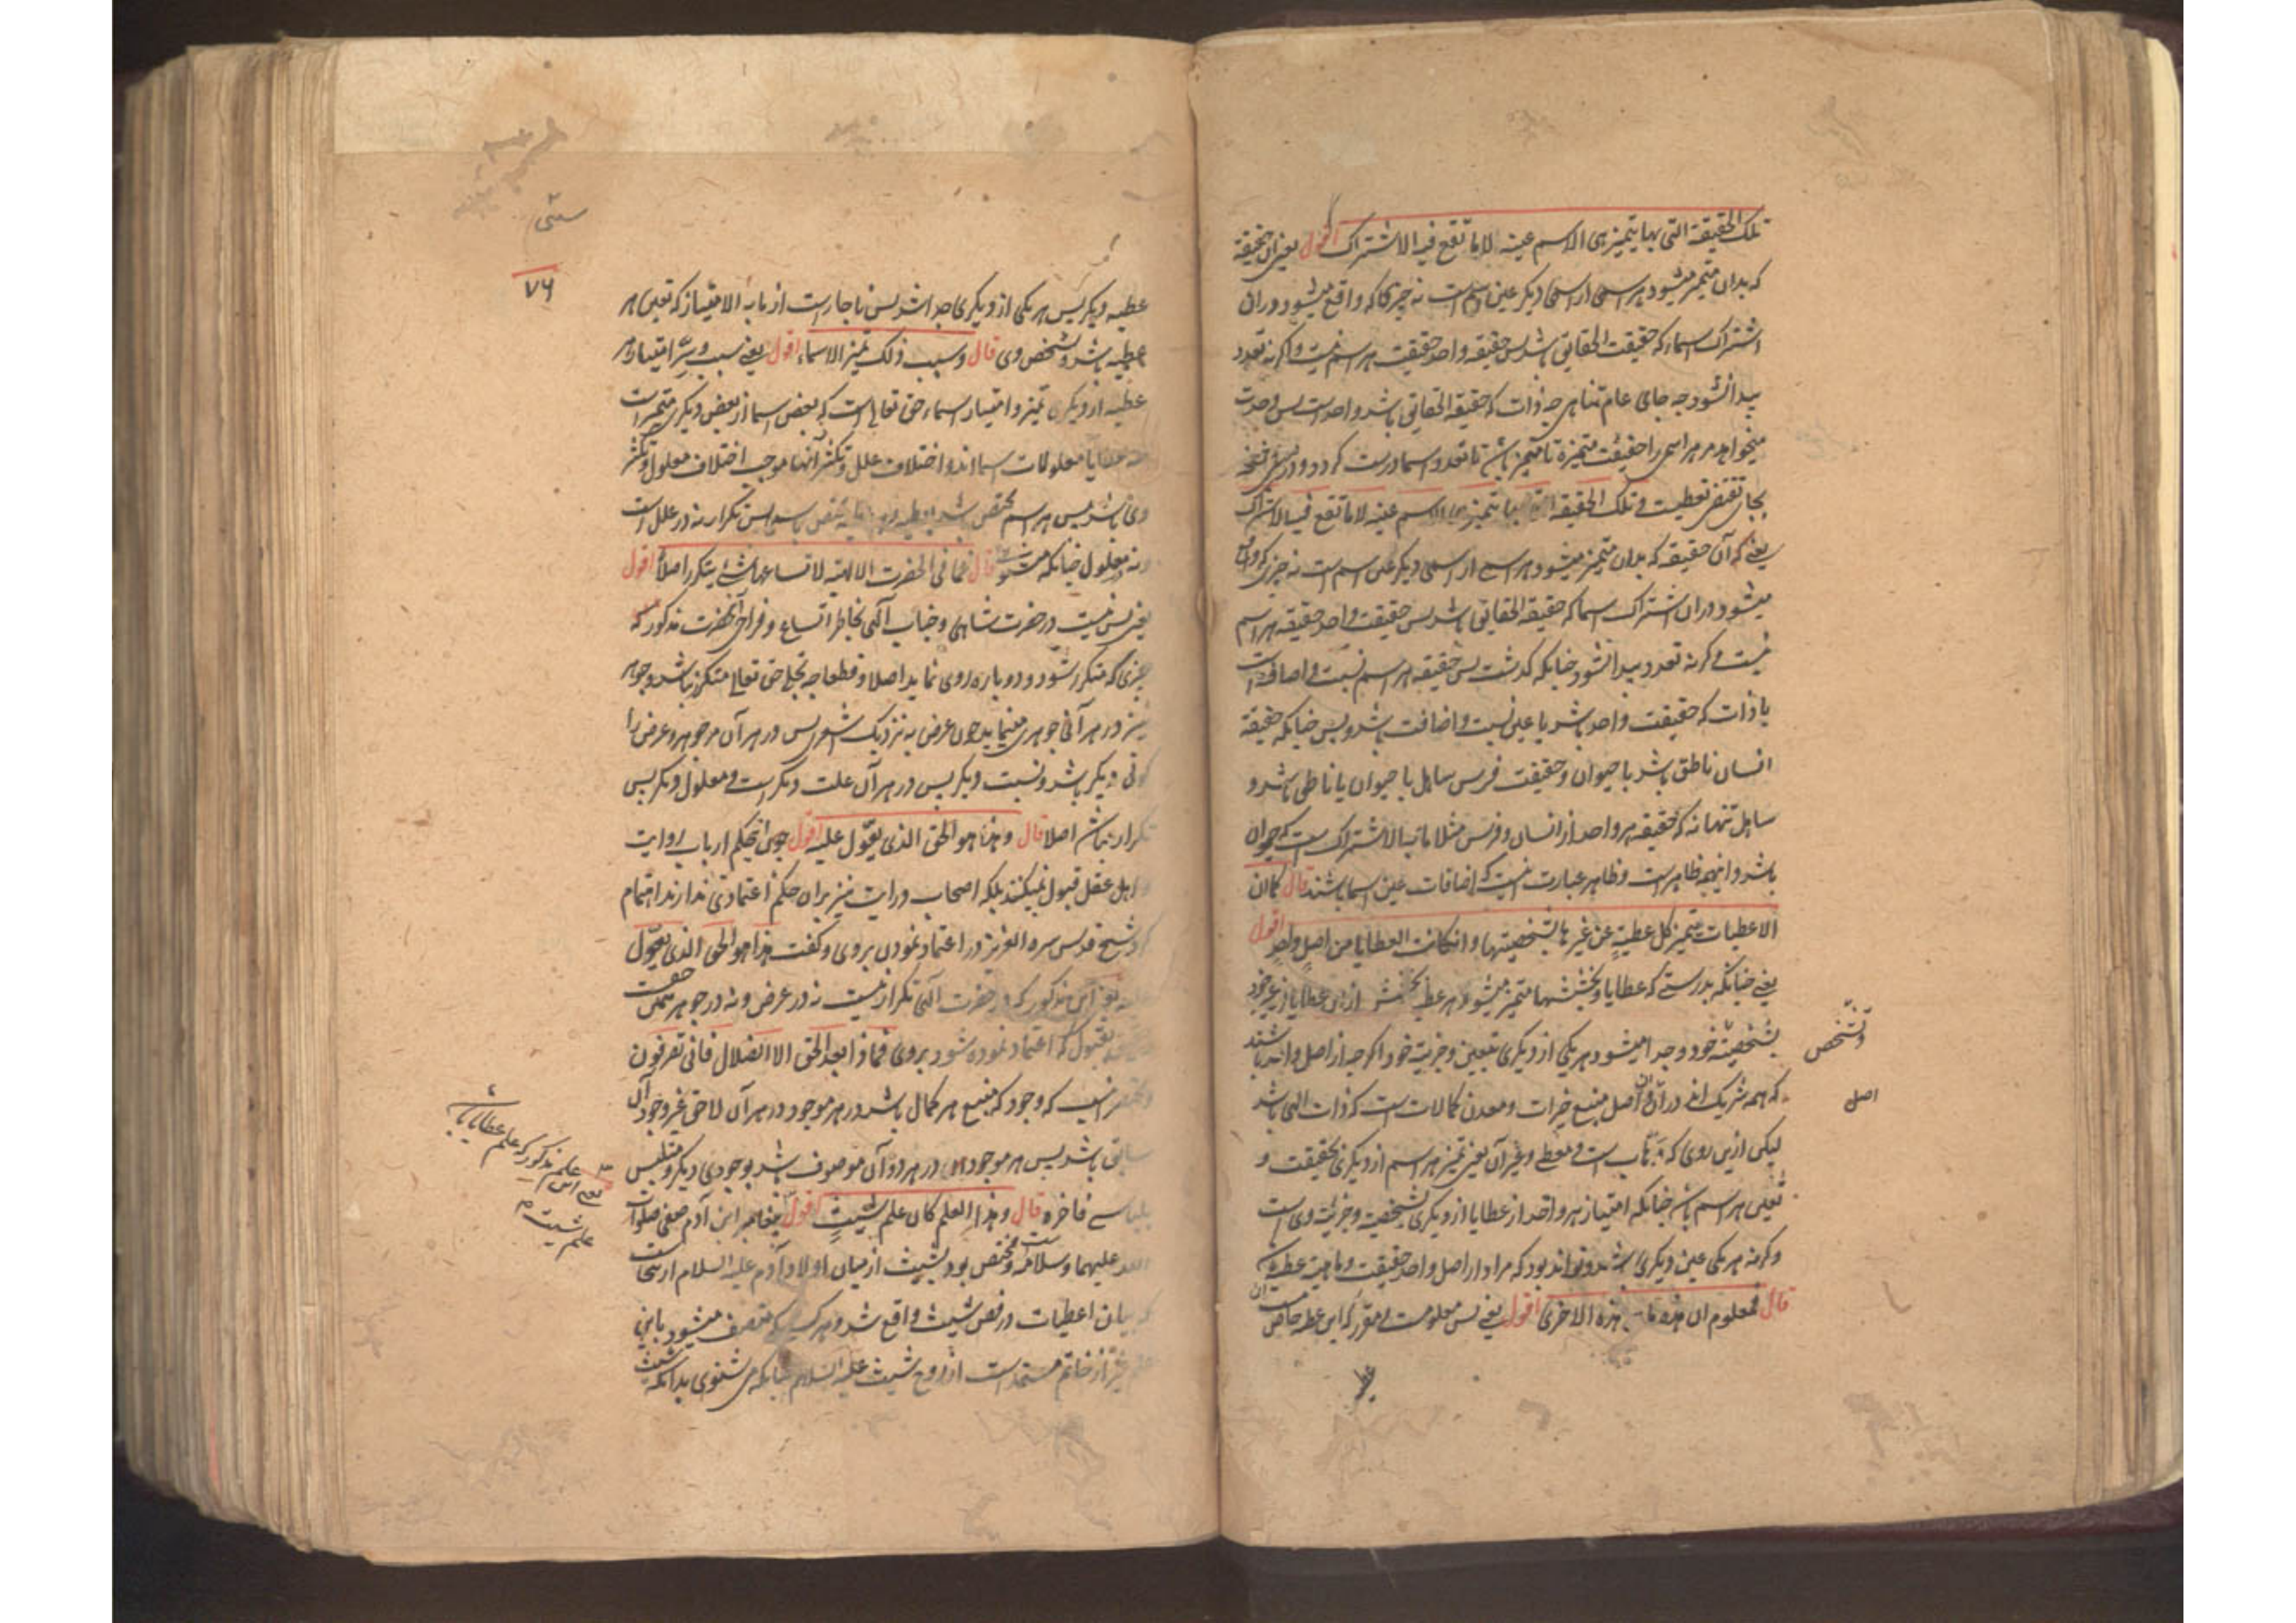 تلک الحقیقة التی بها یتمیز هی الاسم عینه لا ما تقع فیه الاشتراک اقول یعنی آن حقیقة
که بدان متمیز میشود هر اسمی از اسمی دیگر عین آن اسم است نه چیزی که واقع میشود در ان
اشتراک اسماء که حقیقت الحقایق باشد پس حقیقه واحد حقیقت هر اسم نیست و اگر نه تعدد
پیدا نشود چه جای عام تناهی چه ذات که حقیقة الحقایق باشد واحد است پس وحدت
میخواهد مر هر اسمی را حقیقت متمیزه تا متمیز باشد تا تعدد اسما درست گردد و در بعض نسخه
بجای تقتضی تعطیت و تلک الحقیقة التی بها یتمیز هی الاسم عینه لا ما تقع فیه الاشتراک
یعنی که آن حقیقه که بدان متمیز میشود هر اسمی از اسمی دیگر عین اسم است نه چیزی که واقع
میشود در ان اشتراک اسما که حقیقة الحقایق باشد پس حقیقت واحد حقیقة هر اسم
نیست و گرنه تعدد پیدا نشود چنانکه گذشت پس حقیقه هر اسم نسبت و اضافت است
با ذات که حقیقت واحد باشد یا عین نسبت و اضافت باشد و بس چنانکه حقیقة
انسان ناطق باشد با حیوان و حقیقت فرس ساهل با حیوان یا ناطق باشد و
ساهل تنها نه که حقیقه هر واحد از انسان و فرس مثلا ما به الاشتراک است که حیوان
باشد و اینجه ظاهر است و ظاهر عبارت اینست که اضافات عین اسما باشند قال کما ان
الاعطیات تتمیز کل عطیةٍ عن غیرها بشخصیتها و ان کانت العطایا من اصلٍ واحدٍ اقول
یعنی چنانکه بدرستی که عطایا و بخششها متمیز میشود هر عطیه بخشش از این عطایا از غیر خود
بشخصیّة خود و جدا میشود هر یکی از دیگری بتعین و جزییة خود اگر چه از اصل واحد باشند
که همه شریک اند در آن و آن اصل منبع خیرات و معدن کمالات است که ذات الهی باشد
لیکن ازین روی که وهاب است و معطی و غیر آن یعنی تمیز هر اسم از دیگری بحقیقت و
تعین هر اسم باشد چنانکه امتیاز هر واحد از عطایا از دیگری بشخصیة و جزییّة وی است
و گرنه هر یکی عین دیگری باشد و تواند بود که مراد از اصل واحد حقیقت و ماهیة عطیه
قال فمعلوم ان هذه ما هی هذه الاخری اقول یعنی پس معلوم است و مقرر که این عطیه خاص
و تشخص
اصل
۷۶
عطیه دیگر پس هر یکی از دیگری جدا باشد پس ناچار است از ما به الامتیاز که تعین هر
عطیه باشد و تشخص وی قال و سبب ذلک تمیز الاسماء اقول یعنی سبب و سِرّ امتیاز هر
عطیه از دیگری تمیز و امتیاز اسماء حق تعالی است که بعض اسما از بعض دیگری متمیز است
عطایا معلولات اسما اند و اختلاف علل و تکثر آنها موجب اختلاف معلول و تکثر
وی باشد پس هر اسم مختص باشد بعطیه پس تکرار نه در علل است
و نه در معلول چنانکه میشنوی قال فما فی الحضرت الالهیة لاتساعها شئ یتکرر اصلا اقول
یعنی پس نیست در حضرت متناهی و جناب آلهی بخاطر اتساع و فراخی آنحضرت مذکور که
چیزی که متکرر شود و دوباره روی نماید اصلا و قطعا چه تجلی حق تعالی متکرر نباشد و جوهر
نیز در هر آنی جوهری مینماید چون عرض به نزدیک اشعری پس در هر آن مر جوهر و عرض را
کونی دیگر باشد و نسبت دیگر پس در هر آن علت دیگر است و معلول دیگر پس
تکرار نباشد اصلا قال و هذا هو الحق الذی یعوّل علیه اقول چون اینحکم ارباب روایت
و اهل عقل قبول نمیکنند بلکه اصحاب درایت نیز بر ان حکم اعتمادی ندارند اهتمام
کرد شیخ قدس سره العزیز در اعتماد نمودن بروی و گفت هذا هو الحق الذی یعوّل
علیه یعنی این مذکور که در حضرت آلهی تکرار نیست نه در عرض و نه در جوهر همین حق است
بقبول که اعتماد نموده شود بروی فماذا بعد الحق الا الضلال فانی تصرفون
که وجود که منبع هر کمال باشد در هر موجود در هر آن لاحق غیر وجود آن
سابق باشد پس هر موجود در هر دو آن موصوف باشد بوجودی دیگر و متلبس
بلباسی فاخره قال و هذا العلم کان علم شیثٍ اقول پیغامبر ابن آدم صفی صلوات
الله علیهما و سلامه و مختص بود بشیث از میان اولاد آدم علیه السلام
که بیان اعطیات در فص شیث واقع شد و هر کسی که متصف میشود باین
علم غیر از خاتم مستمد است از روح شیث علیه السلام چنانکه می شنوی بدانکه شیث
علم مذکور که علم عطایا باشد
علم شیث